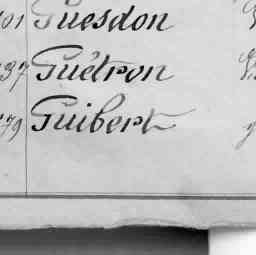 01 Guesdon
37 Guétron
79 Guibert